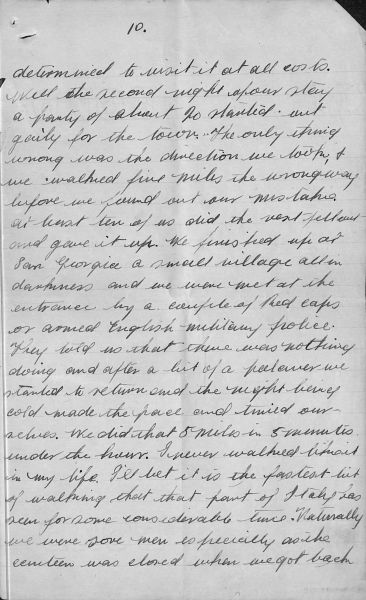 10.
determined to visit it at all costs.
Well the second night of our stay
a party of about 20 started out
gaily for the town. The only thing
wrong was the direction we took, &
we walked five miles the wrong way
before we found out our mistake
at least ten of us did the rest fell out
and gave it up. We finished up at
San Giorgia a small village all in
darkness and we were met at the
entrance by a couple of Red caps
or armed English military police.
They told us that there was nothing
doing and after a bit of a palaver we
started to return and the night being
cold made the pace and timed our-
selves. We did that 5 miles in 5 minutes
under the hour. I never walked like it
in my life. I'll bet it is the fastest bit
of walking that that part of Italy has
seen for some considerable time. Naturally
we were sore men especially as the
canteen was closed when we got back